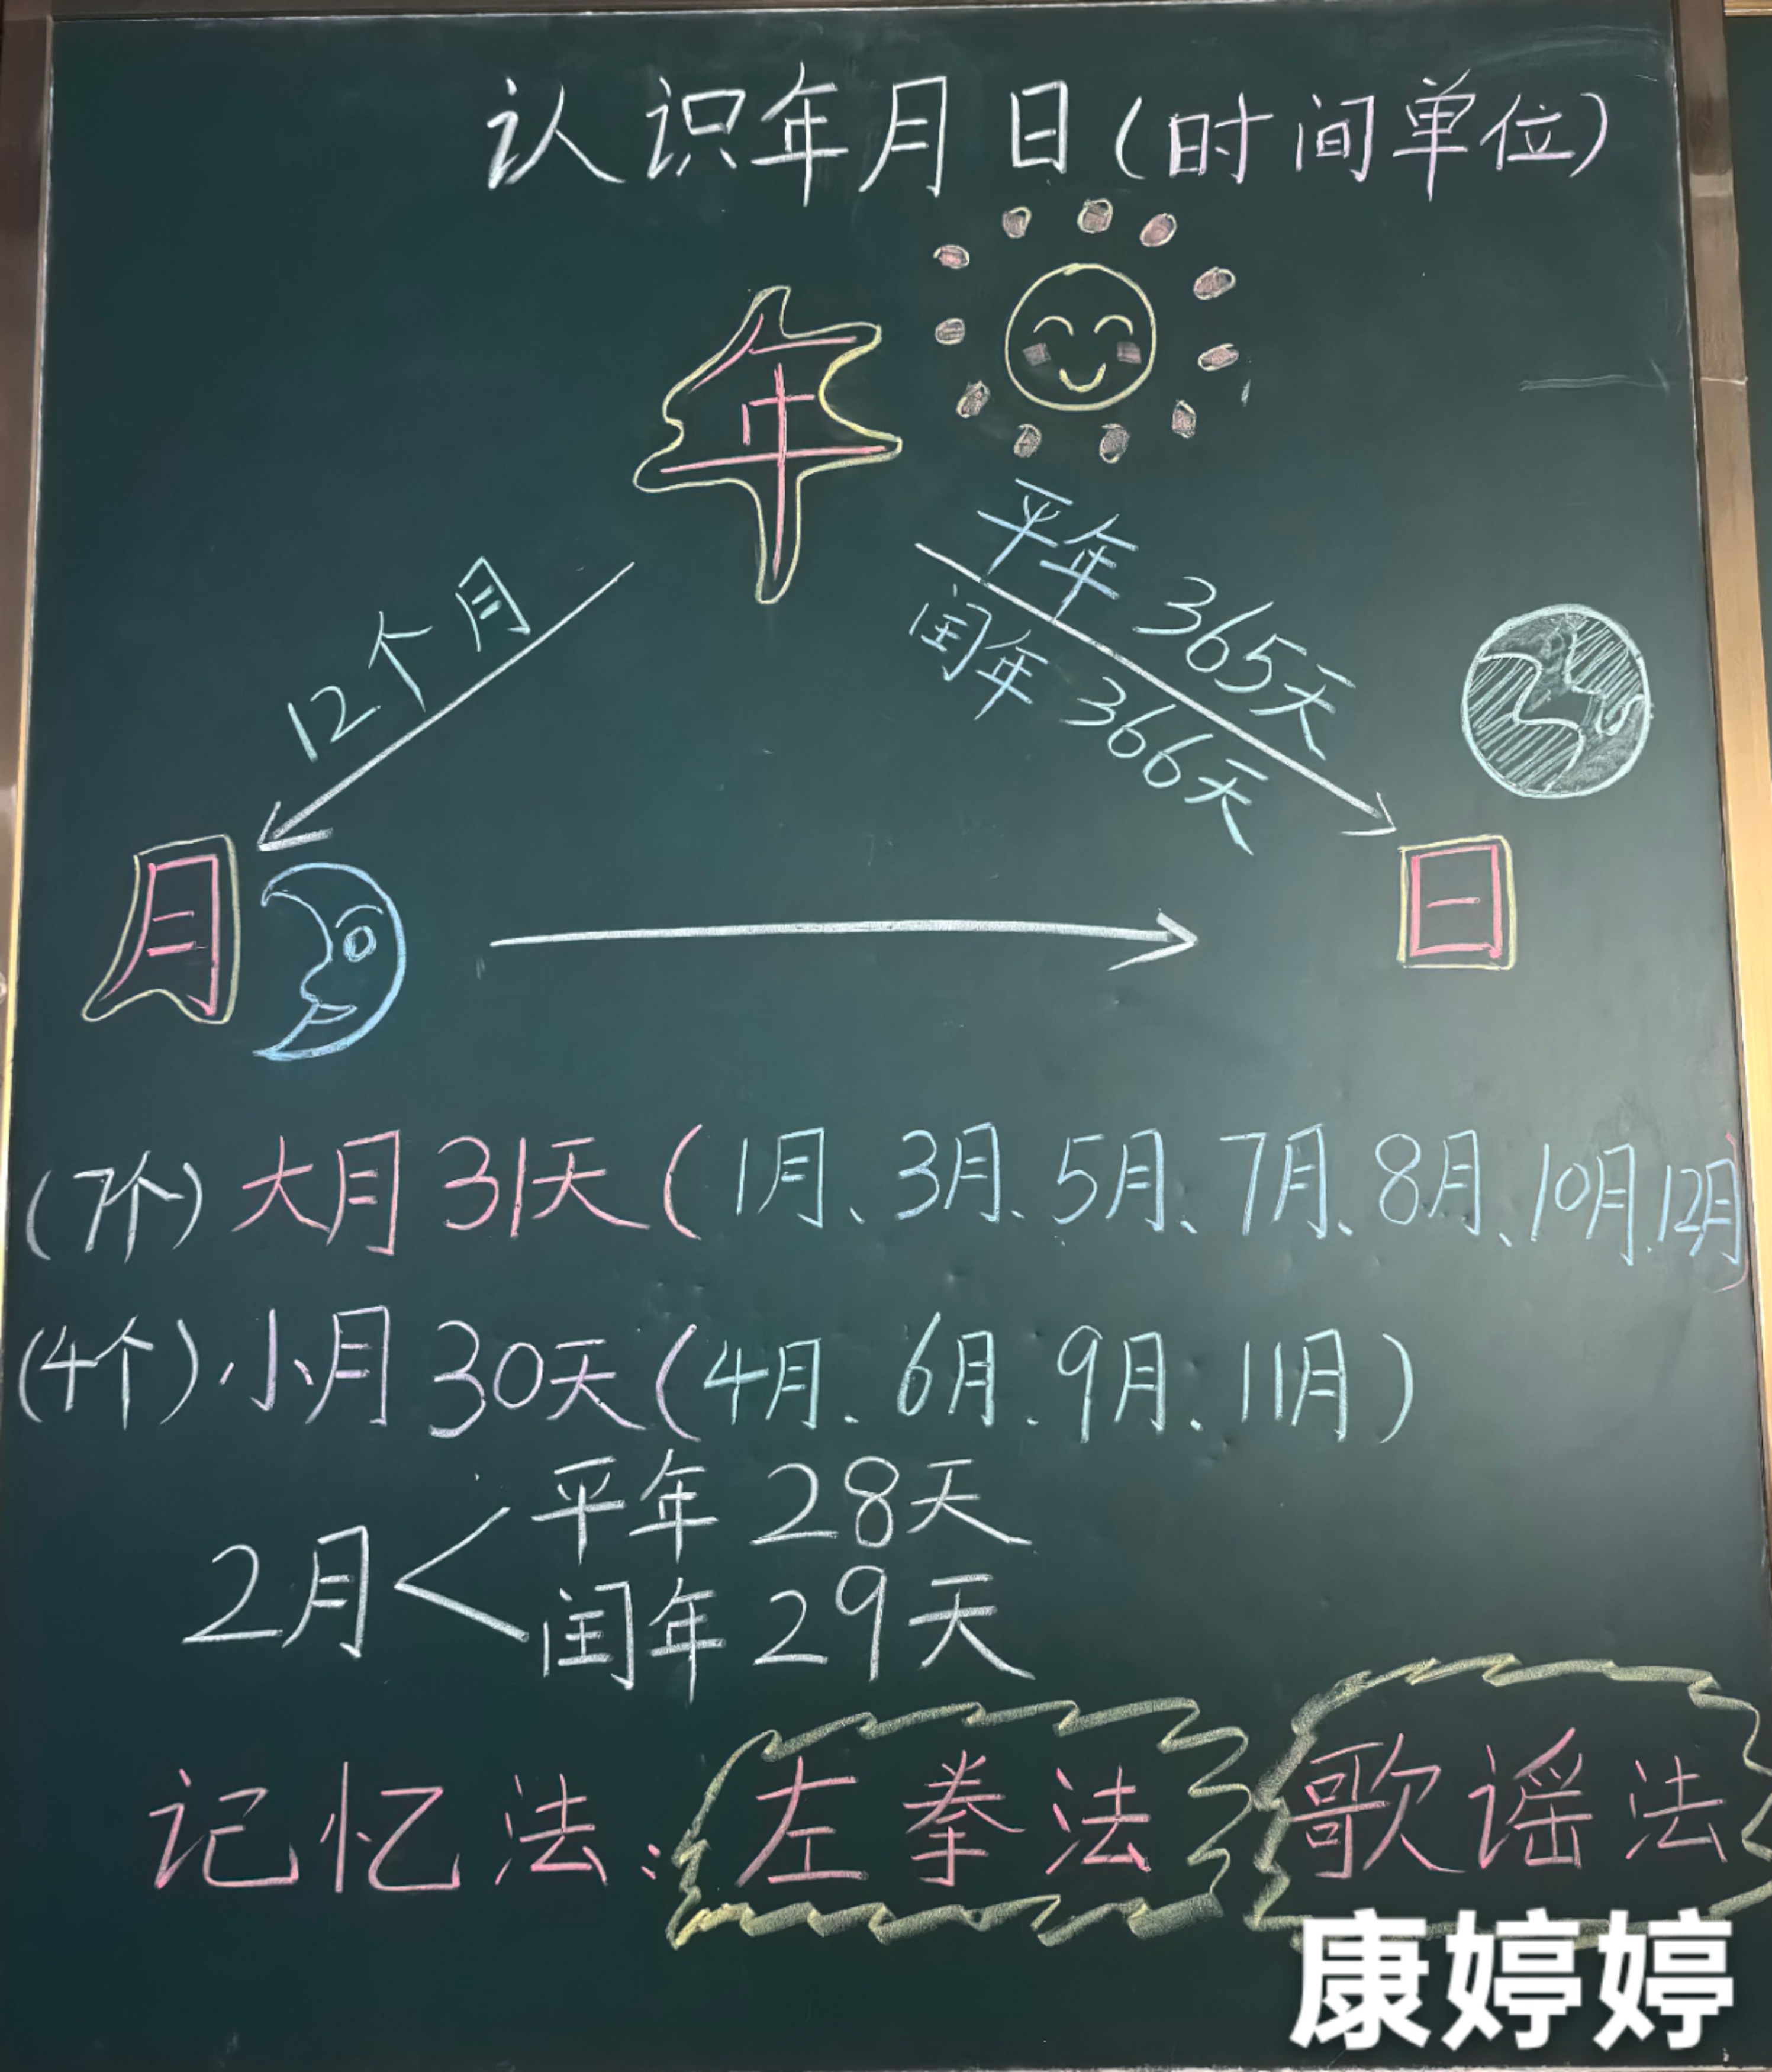 认识年月日(时间单位)
年
12个月
平年 365天
闰年 366天
月
日
(7个)大月 31天(1月、3月、5月、7月、8月、10月、12月)
(4个)小月 30天(4月、6月、9月、11月)
2月
平年 28天
闰年 29天
记忆法:左拳法 歌谣法
康婷婷